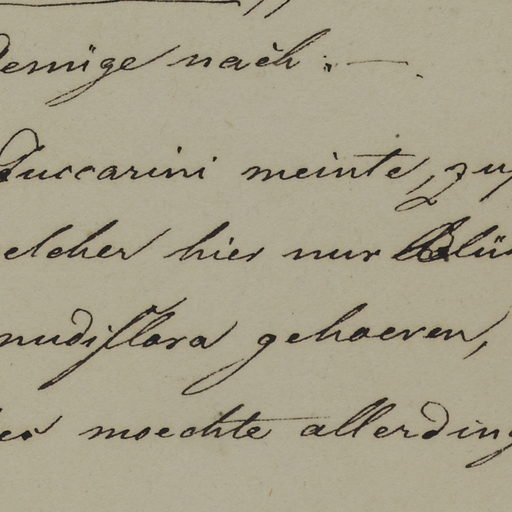 demige nach. —
Zuccarini meinte, zu
elcher hier nur Blü
nudiflora gehoeren,
es moechte allerding